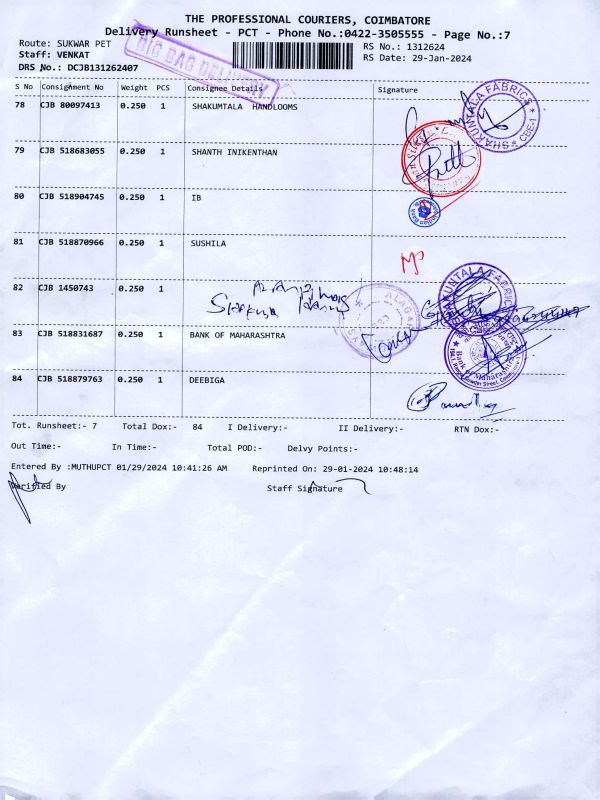 THE PROFESSIONAL COURIERS, COIMBATORE
Delivery Runsheet - PCT - Phone No.:0422-3505555 - Page No.:7
Route: SUKWAR PET
RS No.: 1312624
Staff: VENKAT
RS Date: 29-Jan-2024
DRS No.: DCJB131262407
BIG BAG DELIVERY
S No Consignment No Weight PCS Consignee Details Signature
78 CJB 80097413 0.250 1 SHAKUMTALA HANDLOOMS
SHAKUNTALA FABRICS * CBE-1 *
79 CJB 518683055 0.250 1 SHANTH INIKENTHAN
80 CJB 518904745 0.250 1 IB
81 CJB 518870966 0.250 1 SUSHILA
82 CJB 1450743 0.250 1
83 CJB 518831687 0.250 1 BANK OF MAHARASHTRA
84 CJB 518879763 0.250 1 DEEBIGA
Tot. Runsheet:- 7 Total Dox:- 84 I Delivery:- II Delivery:- RTN Dox:-
Out Time:- In Time:- Total POD:- Delvy Points:-
Entered By :MUTHUPCT 01/29/2024 10:41:26 AM Reprinted On: 29-01-2024 10:48:14
Verified By Staff Signature